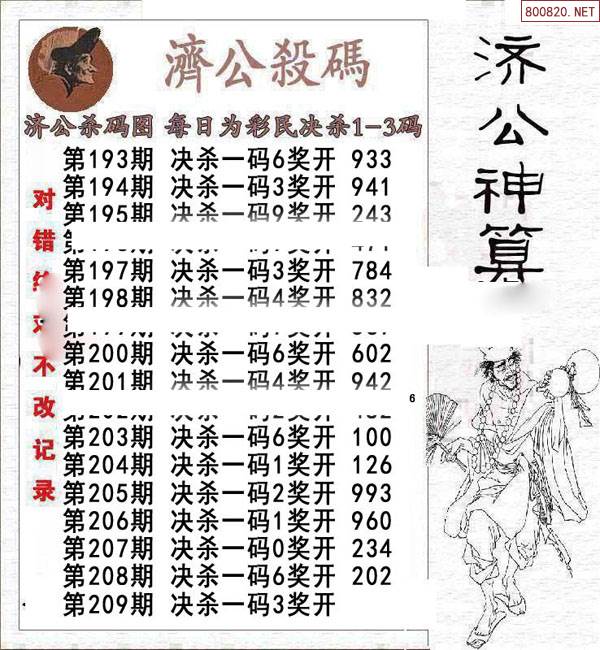 800820.NET
濟公殺碼
济公杀码图 每日为彩民决杀1-3码
第193期 决杀一码6奖开 933
第194期 决杀一码3奖开 941
第195期 决杀一码9奖开 243
第197期 决杀一码3奖开 784
第198期 决杀一码4奖开 832
第200期 决杀一码6奖开 602
第201期 决杀一码4奖开 942
6
第203期 决杀一码6奖开 100
第204期 决杀一码1奖开 126
第205期 决杀一码2奖开 993
第206期 决杀一码1奖开 960
第207期 决杀一码0奖开 234
第208期 决杀一码6奖开 202
第209期 决杀一码3奖开
对错
不改记录
济公神算